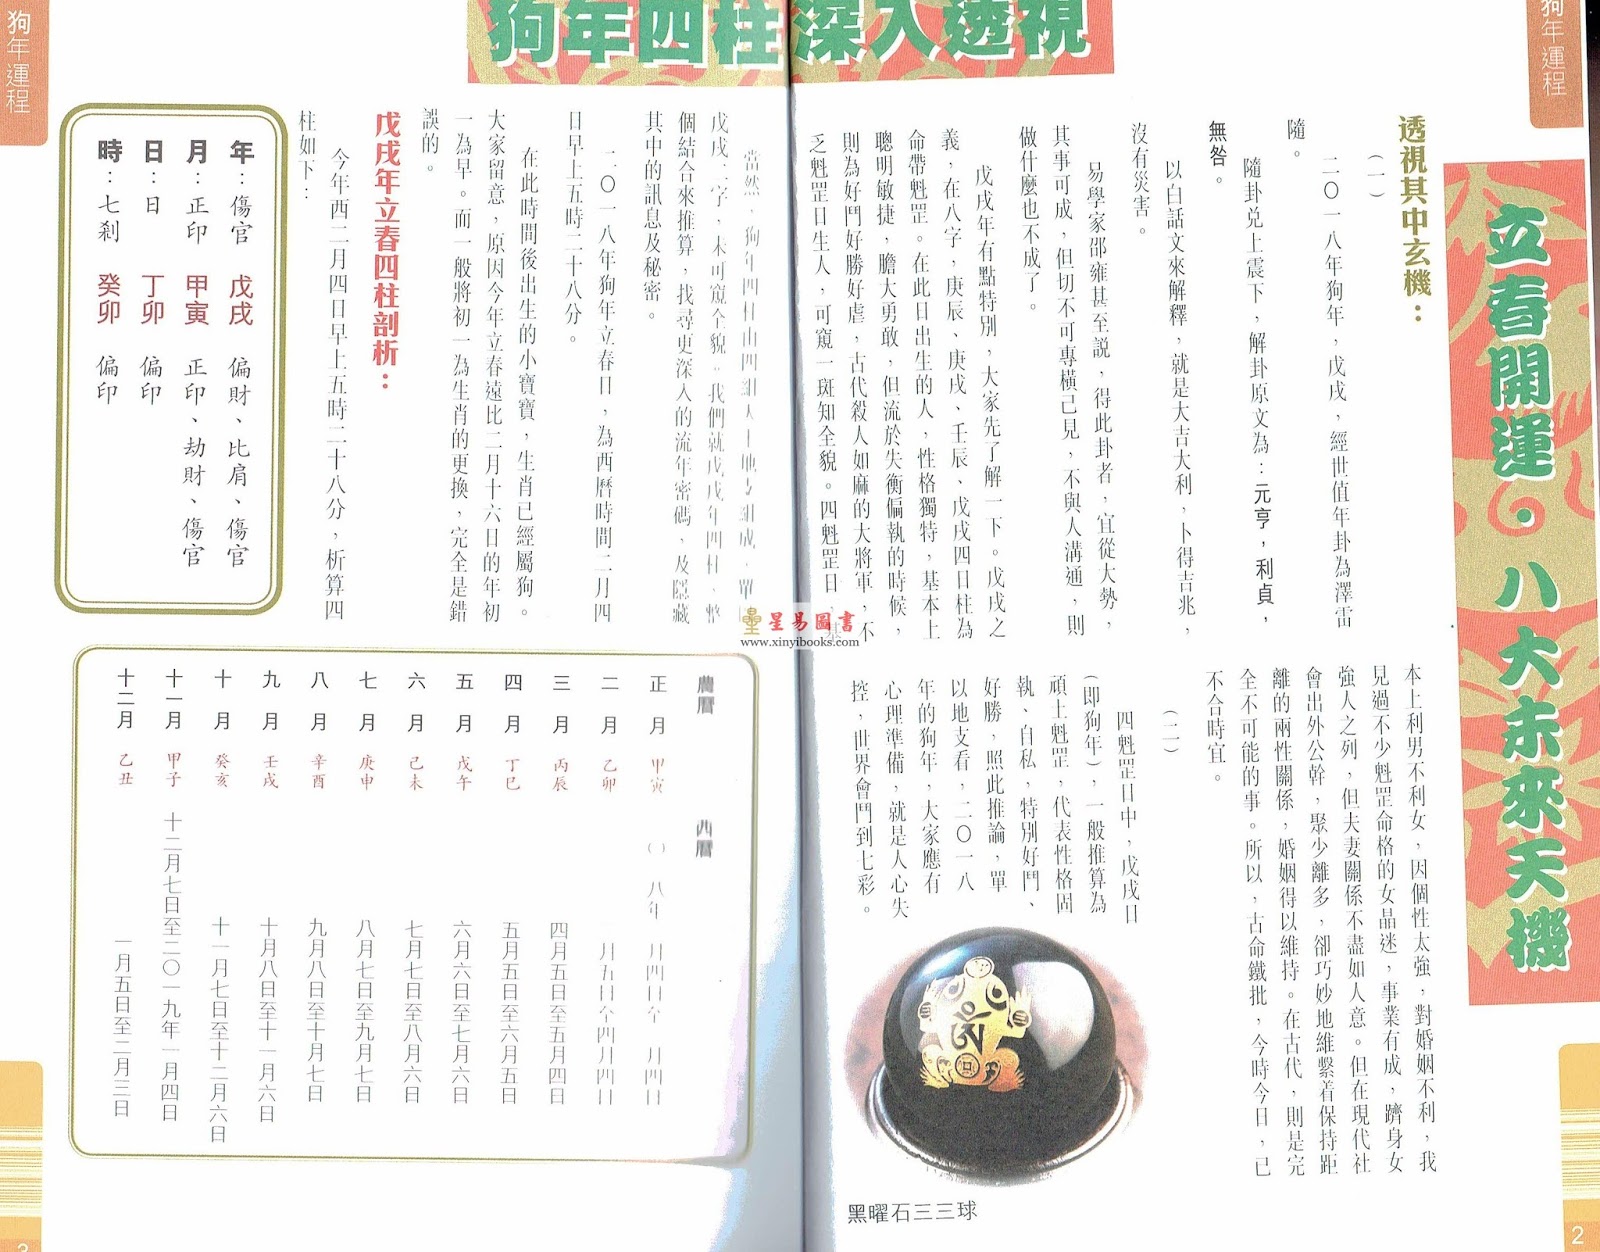 狗年運程
立春開運·八大未來天機
透視其中玄機：
（一）
二〇一八年狗年，戊戌，經世值年卦為澤雷
隨。
隨卦兌上震下，解卦原文為：元亨，利貞，
無咎。
以白話文來解釋，就是大吉大利，卜得吉兆，
沒有災害。
易學家邵雍甚至説，得此卦者，宜從大勢，
其事可成，但切不可專橫己見，不與人溝通，則
做什麼也不成了。
戊戌年有點特別，大家先了解一下。戊戌之
義，在八字，庚辰、庚戌、壬辰、戊戌四日柱為
命帶魁罡。在此日出生的人，性格獨特，基本上
聰明敏捷，膽大勇敢，但流於失衡偏執的時候，
則為好鬥好勝好虐，古代殺人如麻的大將軍，不
乏魁罡日生人，可窺一斑知全貌。四魁罡日，基
本上利男不利女，因個性太強，對婚姻不利，我
見過不少魁罡命格的女晶迷，事業有成，躋身女
強人之列，但夫妻關係不盡如人意。但在現代社
會出外公幹，聚少離多，卻巧妙地維繫着保持距
離的兩性關係，婚姻得以維持。在古代，則是完
全不可能的事。所以，古命鐵批，今時今日，已
不合時宜。
（二）
四魁罡日中，戊戌日
（即狗年），一般推算為
頑土魁罡，代表性格固
執、自私，特別好鬥、
好勝，照此推論，單
以地支看，二〇一八
年的狗年，大家應有
心理準備，就是人心失
控，世界會鬥到七彩。
黑曜石三三球
2
狗年四柱深入透視
當然，狗年四柱由四組天干地支組成，單
戊戌二字，未可窺全貌。我們就戊戌年四柱、整
個結合來推算，找尋更深入的流年密碼，及隱藏
其中的訊息及秘密。
二〇一八年狗年立春日，為西曆時間二月四
日早上五時二十八分。
在此時間後出生的小寶寶，生肖已經屬狗。
大家留意，原因今年立春遠比二月十六日的年初
一為早。而一般將初一為生肖的更換，完全是錯
誤的。
戊戌年立春四柱剖析：
今年西二月四日早上五時二十八分，析算四
柱如下：
年：傷官 戊戌 偏財、比肩、傷官
月：正印 甲寅 正印、劫財、傷官
日：日 丁卯 偏印
時：七剎 癸卯 偏印
農曆 西曆
正月 甲寅
二月 乙卯
三月 丙辰 四月五日至五月四日
四月 丁巳 五月五日至六月五日
五月 戊午 六月六日至七月六日
六月 己未 七月七日至八月六日
七月 庚申 八月七日至九月七日
八月 辛酉 九月八日至十月七日
九月 壬戌 十月八日至十一月六日
十月 癸亥 十一月七日至十二月六日
十一月 甲子 十二月七日至二〇一九年一月四日
十二月 乙丑 一月五日至二月三日
狗年運程
3
星易圖書
www.xinyibooks.com